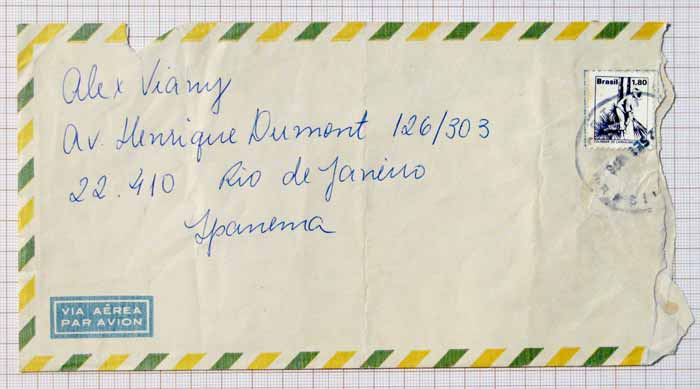 Alex Viany
Av. Henrique Dumont 126/303
22.410 Rio de Janeiro
Ipanema
Brasil 1,80
VIA AÉREA
PAR AVION